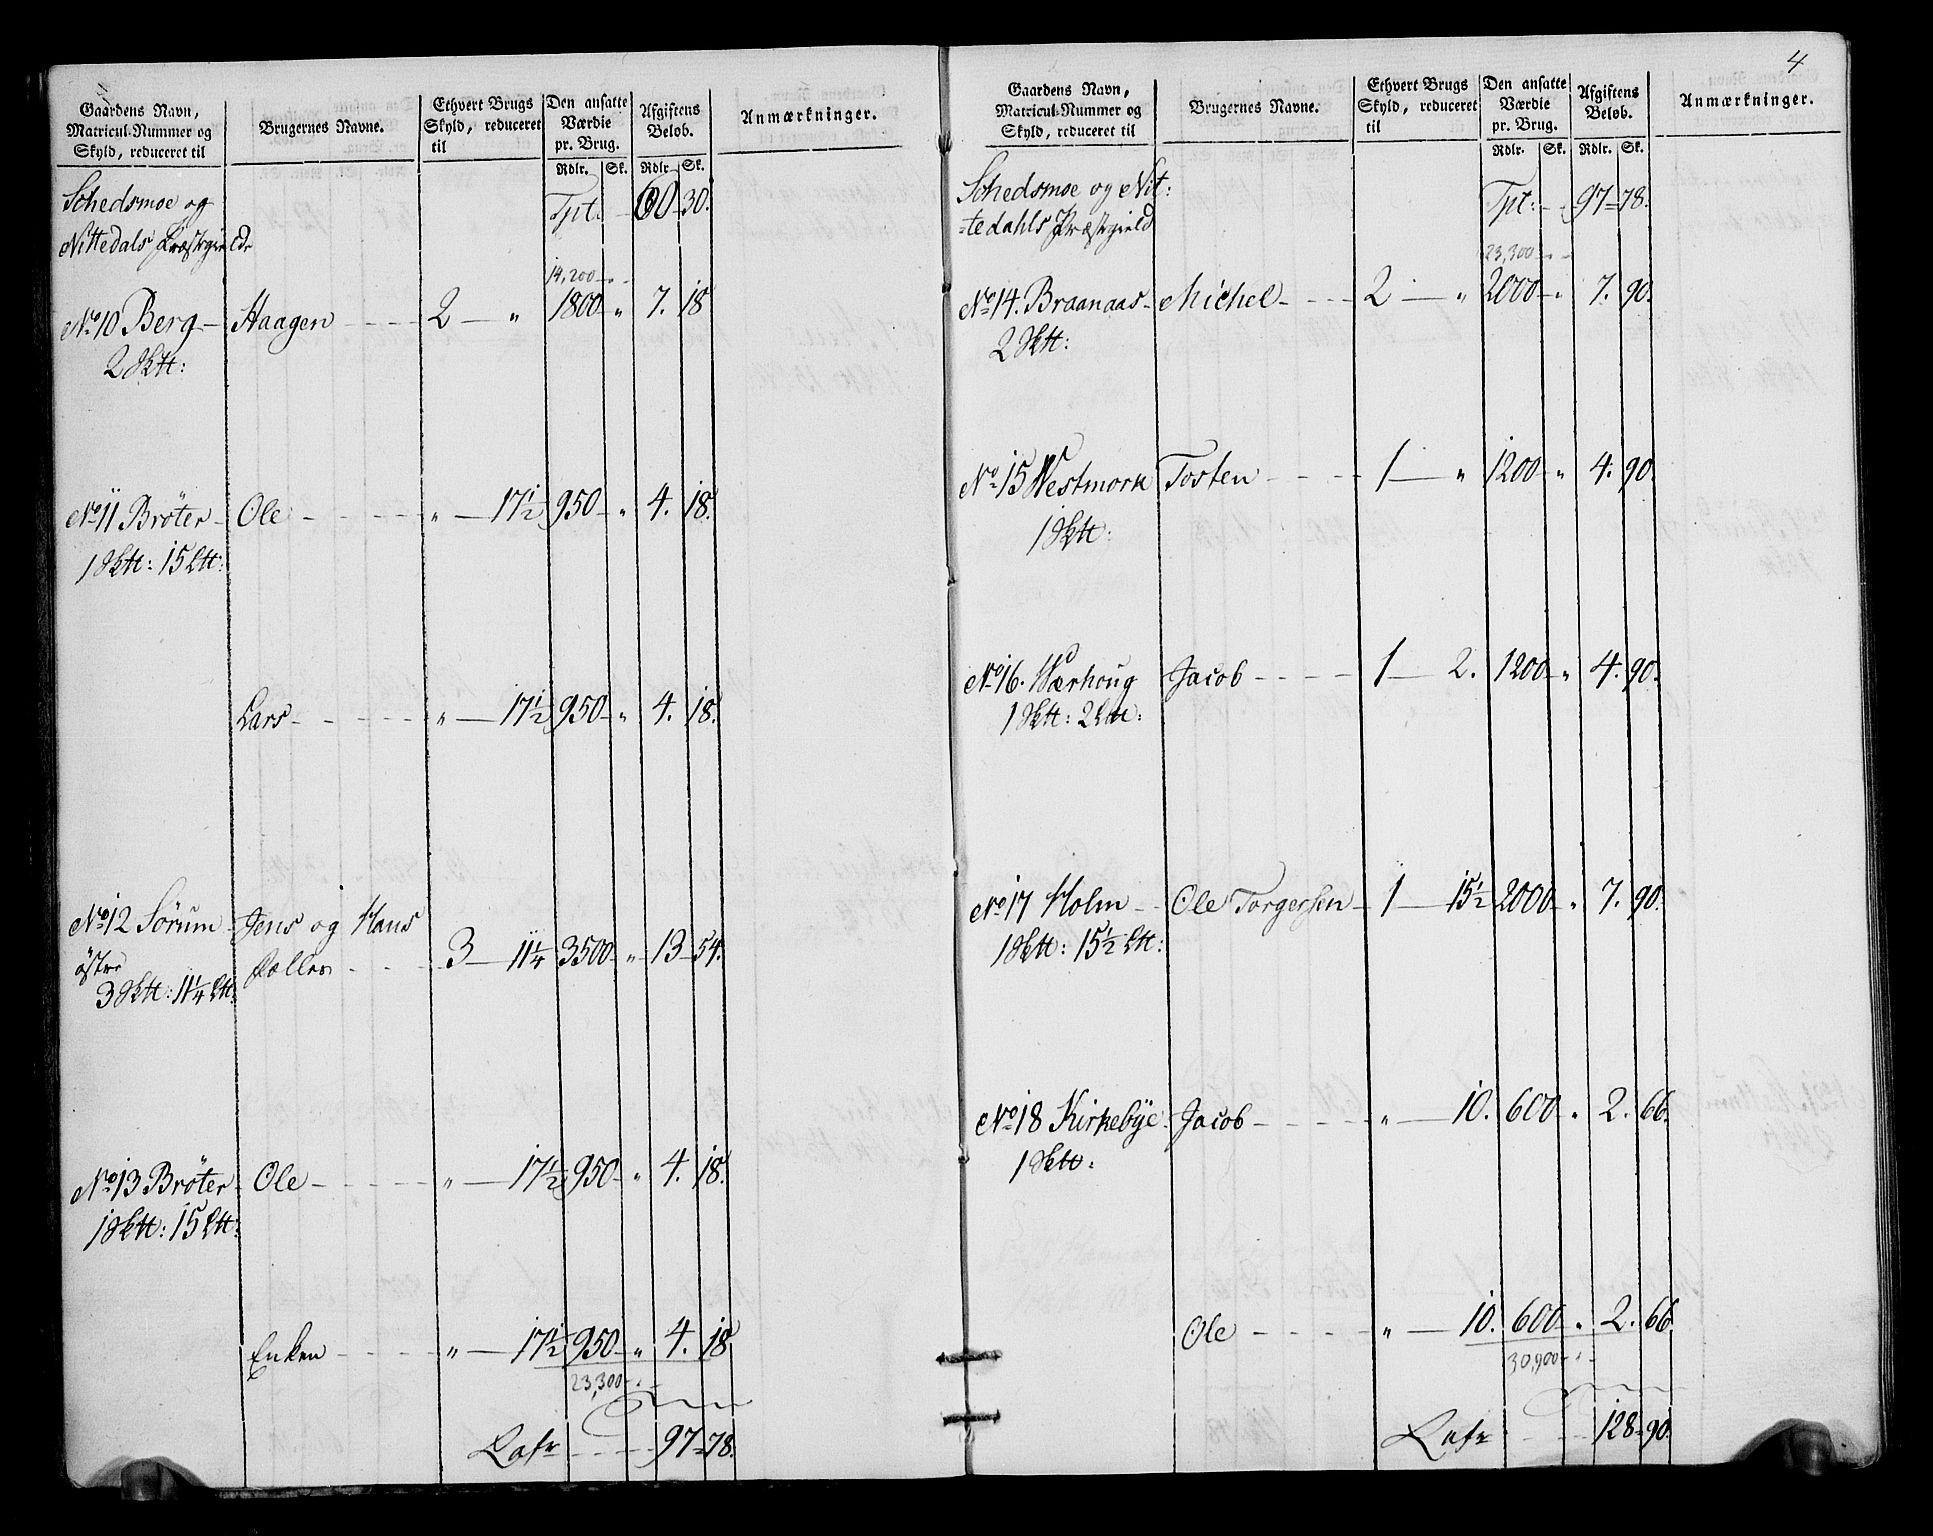 Gaardens Navn, Matricul-Nummer og Skyld, reduceret til
Brugernes Navne.
Ethvert Brugs Skyld, reduceret til
Den ansatte Værdie pr. Brug.
Afgiftens Beløb.
Anmærkninger.
Rdlr. Sk. Rdlr. Sk.
Schedsmoe og Tpt: 60 30.
Nittedals Præstegield
14,200
No 10 Berg Haagen 2 " 1800 " 7. 18
2 Sktt:
No 11 Brøter Ole " 17½ 950 " 4. 18.
1 Sktt: 15 Ltt:
Lars " 17½ 950 " 4. 18.
No 12 Sørum Jens og Hans
østre Fælles 3 11¼ 3500 " 13 54.
3 Sktt: 11¼ Ltt:
No 13 Brøter Ole " 17½ 950 " 4. 18.
1 Sktt: 15 Ltt:
Enken " 17½ 950 " 4. 18
23,300
Lafr 97 78.
4
Gaardens Navn, Matricul-Nummer og Skyld, reduceret til
Brugernes Navne.
Ethvert Brugs Skyld, reduceret til
Den ansatte Værdie pr. Brug.
Afgiftens Beløb.
Anmærkninger.
Rdlr. Sk. Rdlr. Sk.
Schedsmoe og Nit: Tpt: 97 78.
=tedahls Præstegield
23,300
No 14. Braanaas Michel 2 " 2000 " 7. 90.
2 Sktt:
No 15 Westmork Tosten 1 " 1200 " 4. 90.
1 Sktt:
No 16. Wærhoug Jacob 1 2. 1200 " 4. 90.
1 Sktt: 2 Ltt:
No 17 Holm Ole Torgersen 1 15½ 2000 " 7. 90.
1 Sktt: 15½ Ltt:
No 18 Kirkebÿe Jacob " 10. 600 " 2. 66.
1 Sktt:
Ole " 10. 600 " 2. 66.
30,900
Lafr 128 90.